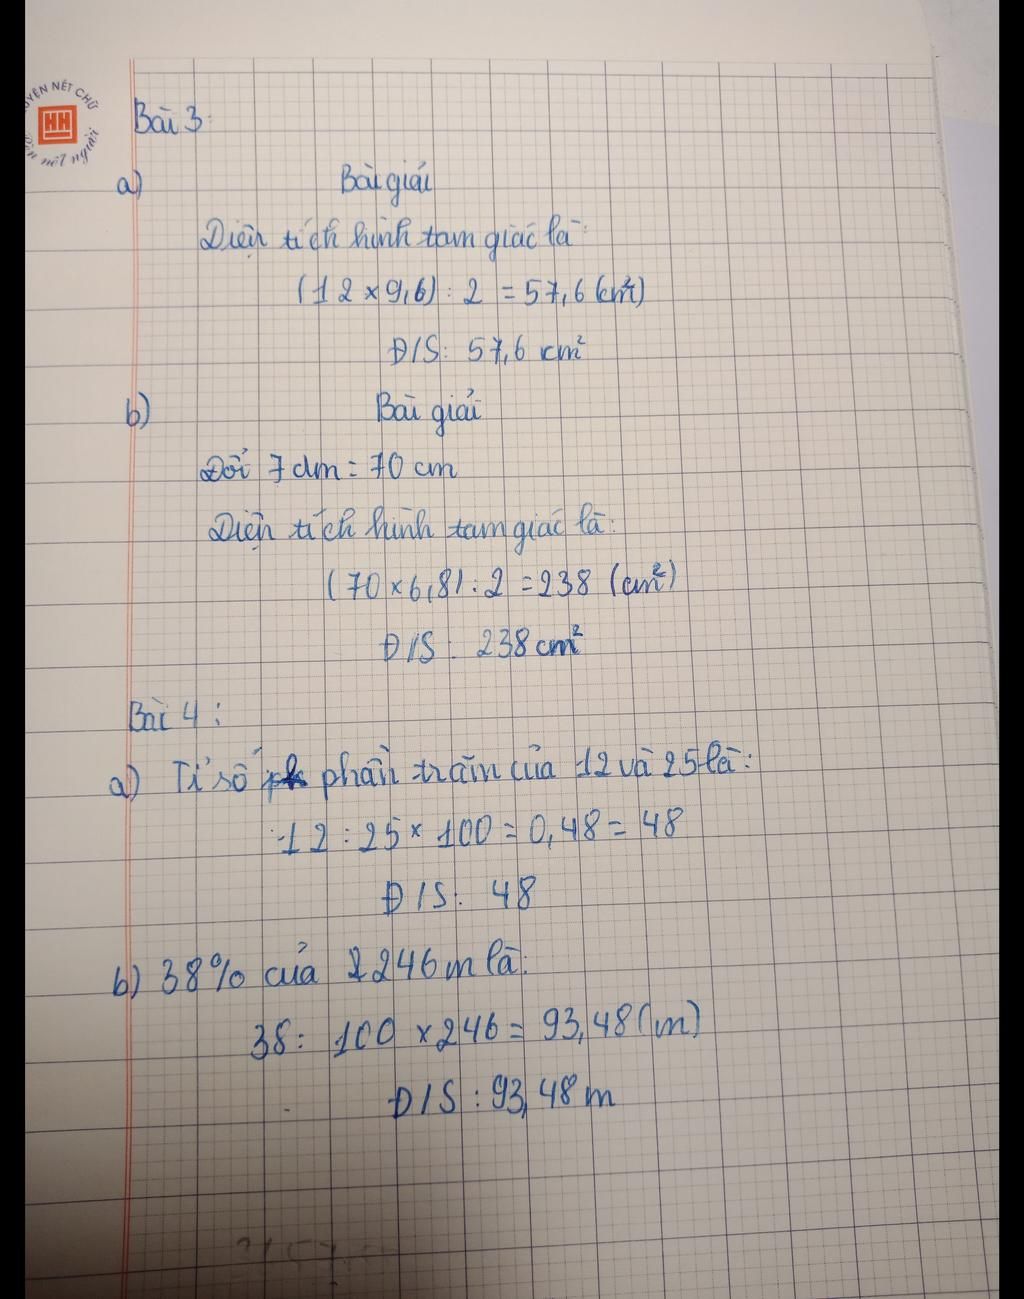 YỆN NÉT CHỮ
HH
nét người
Bài 3:
a) Bài giải
Diện tích hình tam giác là:
(12 x 9,6) : 2 = 57,6 (cm²)
Đ/S: 57,6 cm²
b) Bài giải
Đổi 7 dm = 70 cm
Diện tích hình tam giác là:
(70 x 6,8) : 2 = 238 (cm²)
Đ/S: 238 cm²
Bài 4:
a) Tỉ số phần trăm của 12 và 25 là:
12 : 25 x 100 = 0,48 = 48
Đ/S: 48
b) 38% của 246 m là:
38 : 100 x 246 = 93,48 (m)
Đ/S: 93,48 m